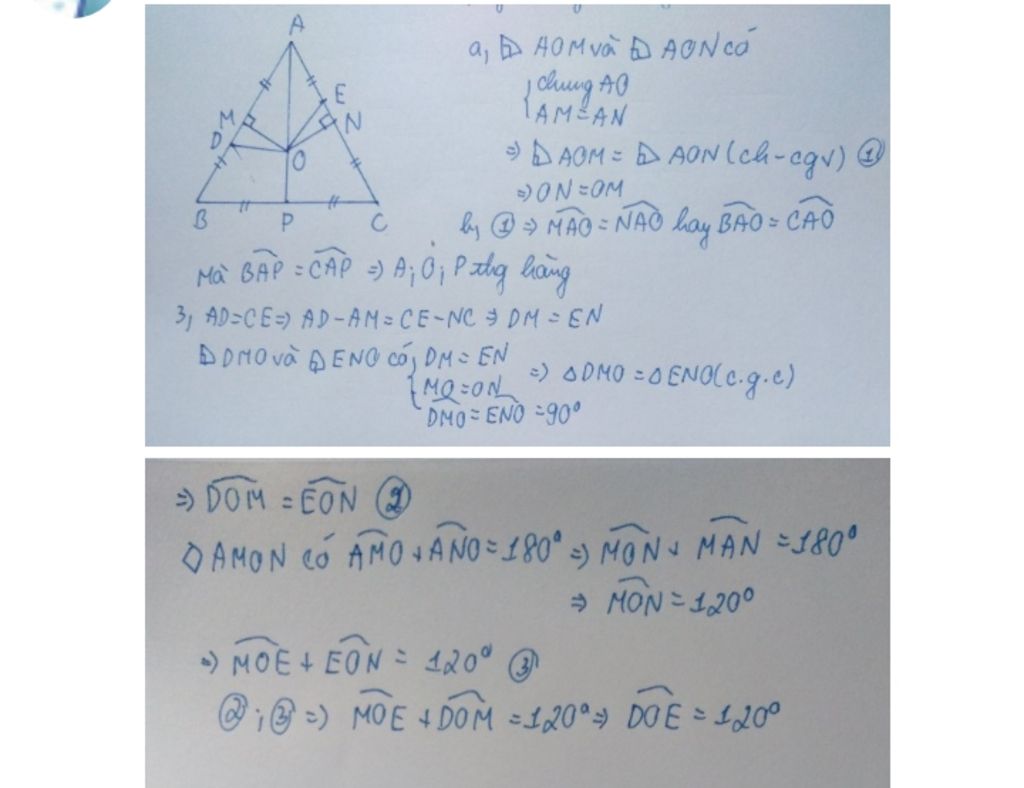 A
M
E
D
N
O
B
P
C
a, ⊿ AOM và ⊿ AON có
{ chung AO
AM = AN
⇒ ⊿ AOM = ⊿ AON (ch - cgv) ①
⇒ ON = OM
b, ① ⇒ MAO = NAO hay BAO = CAO
Mà BAP = CAP ⇒ A; O; P thg hàng
3, AD = CE ⇒ AD - AM = CE - NC ⇒ DM = EN
⊿ DMO và ⊿ ENO có { DM = EN
MO = ON ⇒ △DMO = △ENO (c.g.c)
DMO = ENO = 90°
⇒ DOM = EON ②
◇ AMON có AMO + ANO = 180° ⇒ MON + MAN = 180°
⇒ MON = 120°
⇒ MOE + EON = 120° ③
②; ③ ⇒ MOE + DOM = 120° ⇒ DOE = 120°